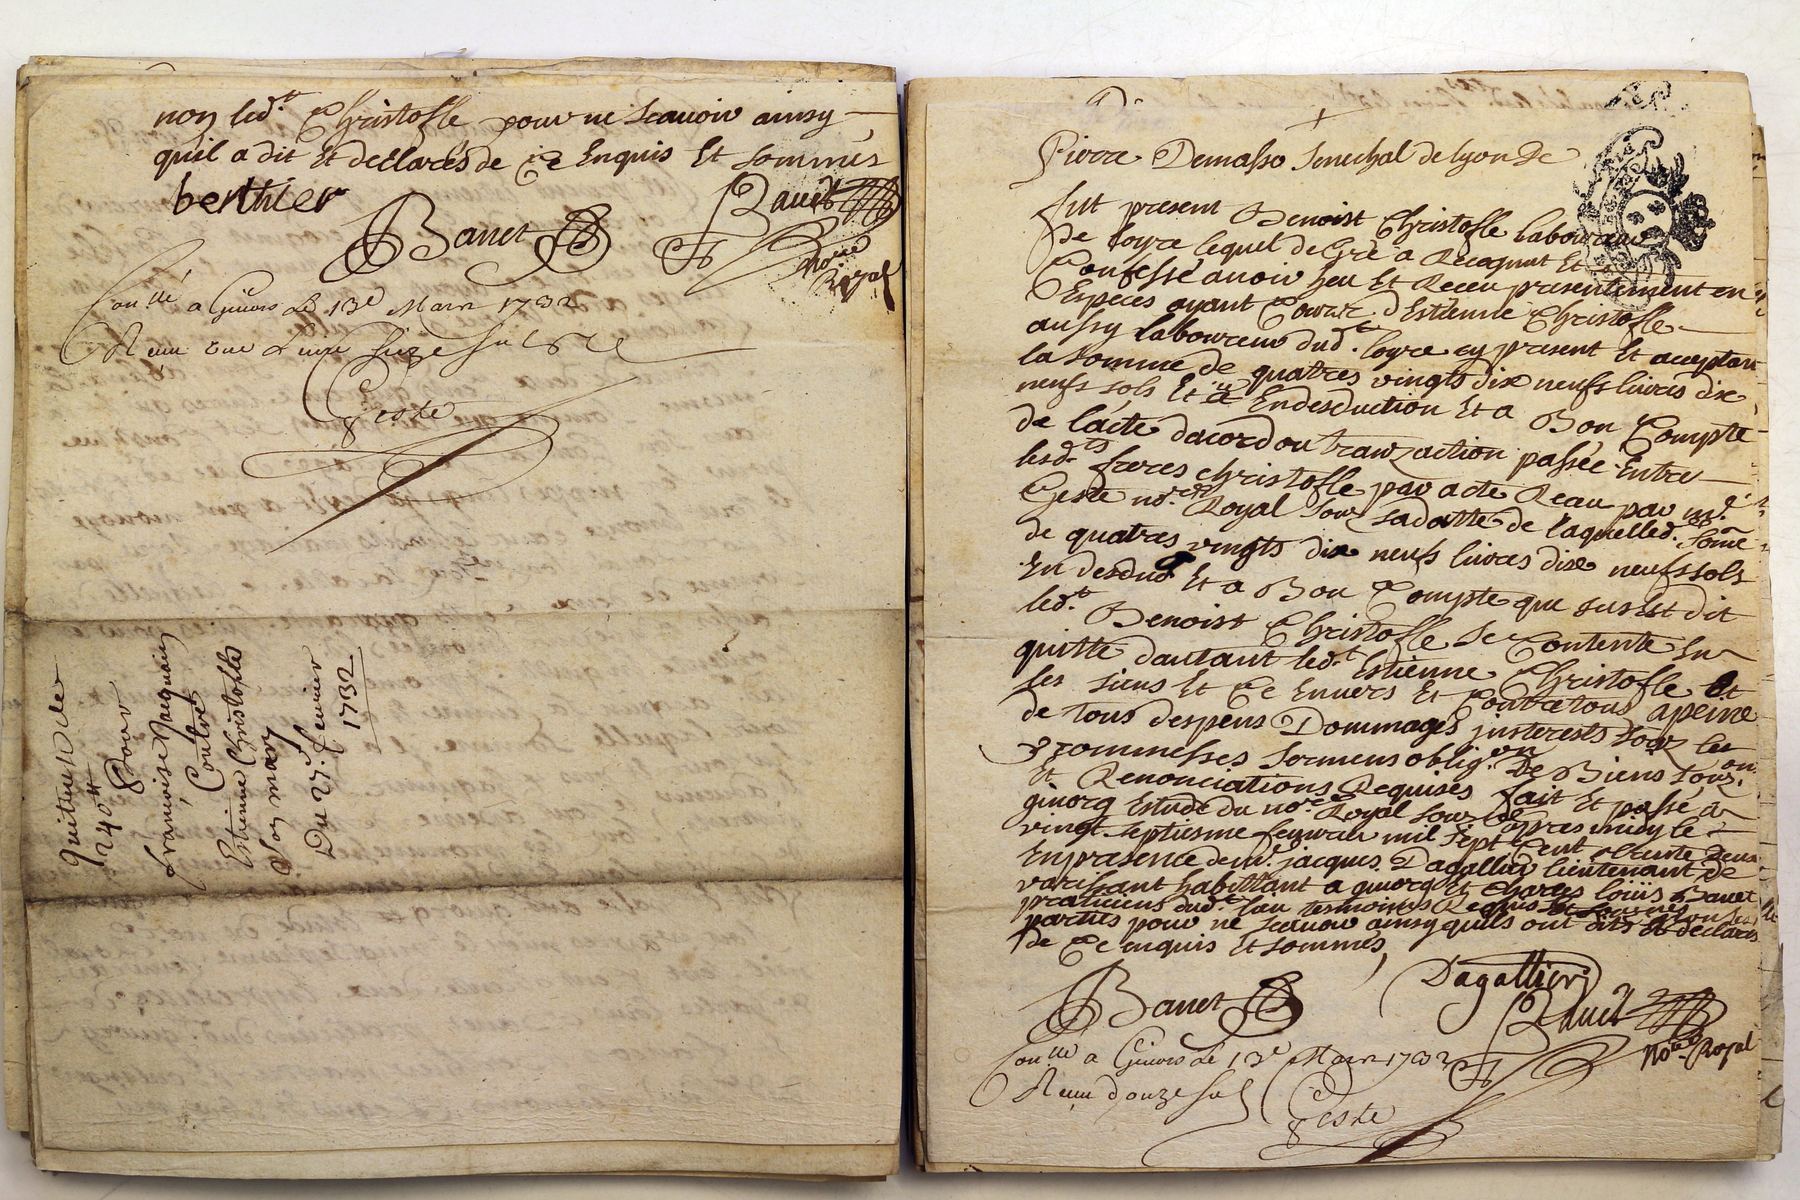 non led.t Christofle pour ne scauoir ainsy
quil a dit Et declarés de ce Enquis Et sommés
berthier
Banet Bauet
no.re
Royal
Con.llé a Giuors Le 13e Mars 1732
Receu
Geste
quittance de
240 lt
pour
francoise Jacquain
Contre
Estienne Christofles
Son mary
Du 27e. feurier
1732
Pierre Demasso Senechal de lyon &c
fut present Benoist Christofle laboureur
de loyre lequel de Gré a Recognut Et
Confessé auoir heu Et Receu presentement en
Especes ayant Cours d'Estienne Christofle
aussy laboureur dud.t loyre cy present Et aceptant
la somme de quatres vingts dix neufs liures dix
neufs sols Et ce En desduction Et a Bon Compte
de l'acte dacord ou tranzaction passée Entre
lesd.ts freres christofle par acte Receu par m.e
Geste no.re Royal Souz sa datte de laquelled. Some
de quatres vingts dix neufs liures dix neufs sols
En desdud Et a Bon Compte que sus Est dit
led.t Benoist Christofle Se Contente En
quitte dautant led.t Estienne Christofle Et
les siens Et ce Enuers Et Contre tous a peine
de tous despens Dommages jnterests souz les
promesses sermens oblig.on De Biens souz.on
Et Renonciations Requises fait Et passé a
giuorg Estude du no.re Royal Souz.né apres midy le
vingt septiesme feurier mil sept Cent trente deux
En presence de m.r jacques Dagallier lieutenant de
habittant a giuorg Et Charles loüis Banet
praticiens dud.t lieu tesmoins Requis Et
parties pour ne scauoir ainsy quils ont dits Et declarés
de ce enquis Et sommés
Dagallier
Banet Bauet
no.re Royal
Con.llé a Giuors Le 13e Mars 1732
Receu douze sols
Geste